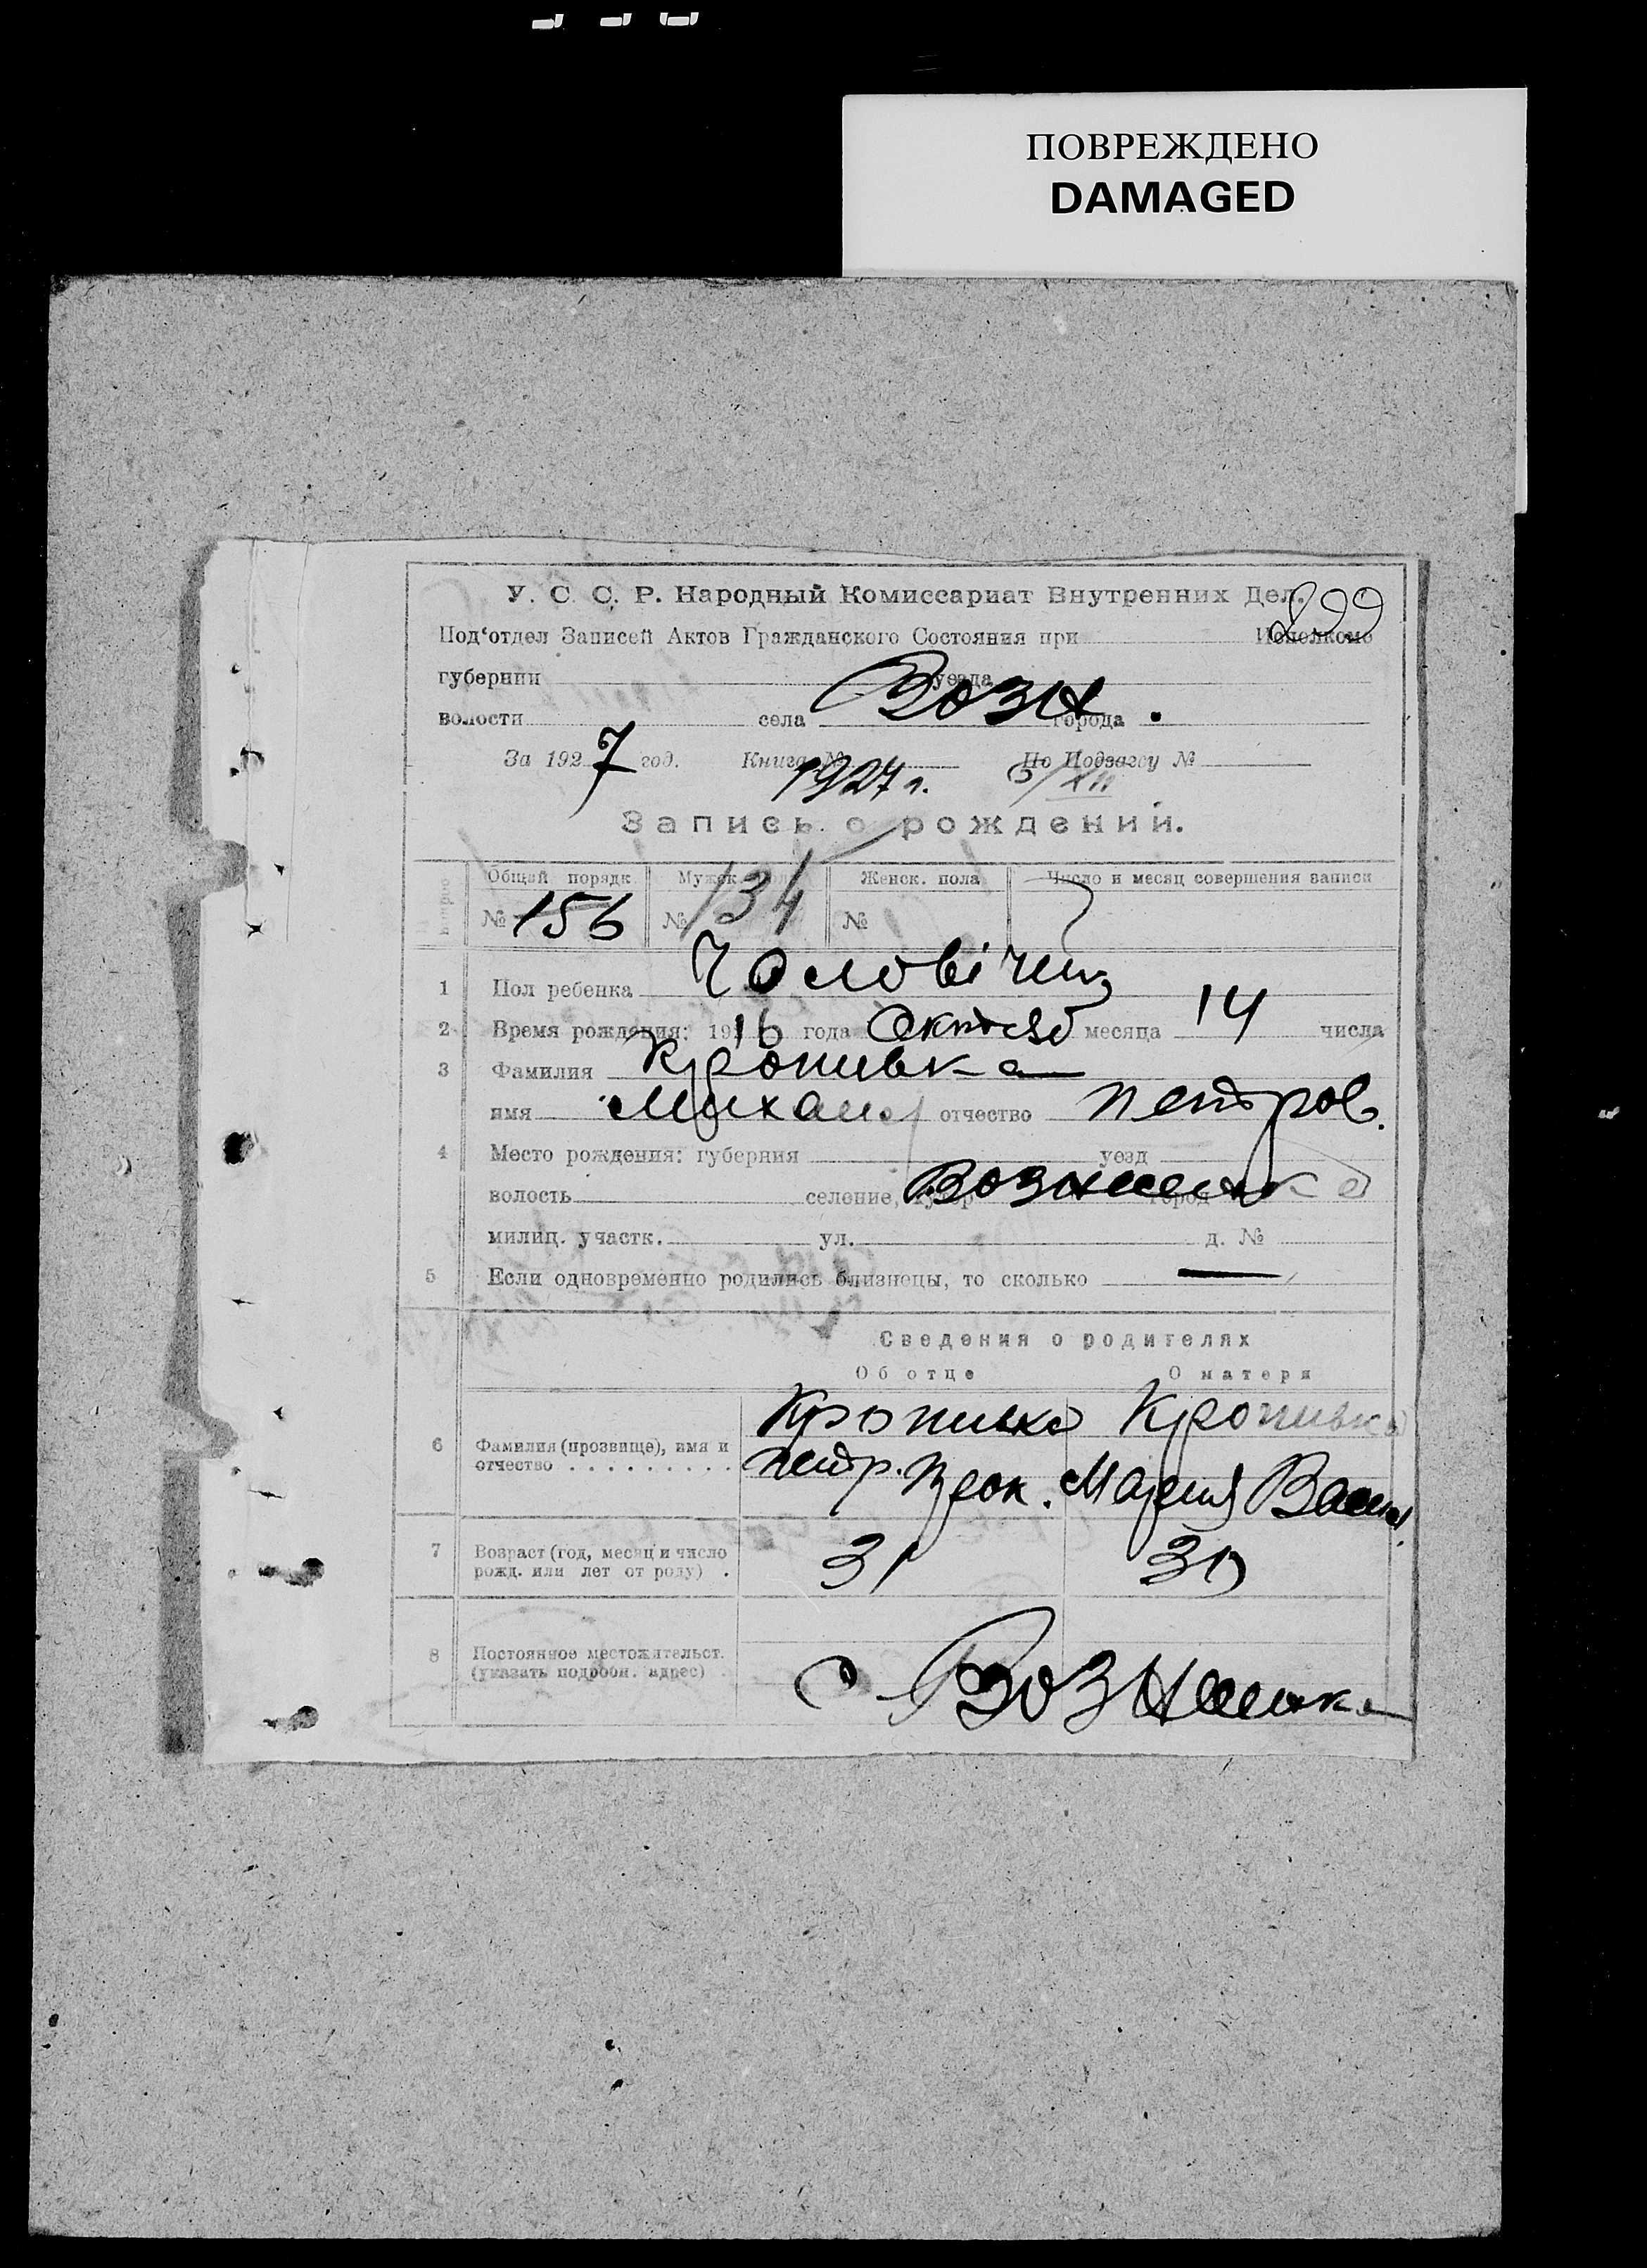 ПОВРЕЖДЕНО
DAMAGED
У. С. С. Р. Народный Комиссариат Внутренних Дел.
299
Под‘отдел Записей Актов Гражданского Состояния при Исполкоме
губернии уезда
волости села Возн. города
За 1927 год. Книга № По Подзагсу №
1927 г.
Запись о рождении.
Общий порядк. Мужск. пола Женск. пола Число и месяц совершения записи
№ 156 № 134 №
1 Пол ребенка Чоловічий
2 Время рождения: 1916 года Октяб месяца 14 числа
3 Фамилия Кропивка
имя Михаил отчество Петров.
4 Место рождения: губерния уезд
волость селение, хутор город Вознесенка
милиц. участк. ул. д. №
5 Если одновременно родились близнецы, то сколько —
Сведения о родителях
Об отце О матери
Кропивка Кропивка
6 Фамилия (прозвище), имя и
отчество Петр. Мария Васил.
7 Возраст (год, месяц и число
рожд. или лет от роду) . 31
8 Постоянное местожительст.
(указать подробн. адрес) . с Вознесенка